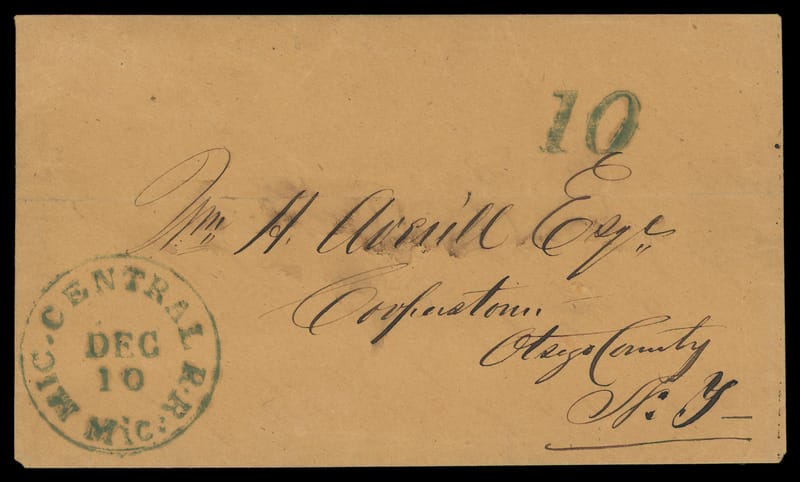 10
Wm H. Averill Esqr
Cooperstown
Otsego County
N. Y
MIC. CENTRAL R.R.
DEC
10
Mic.